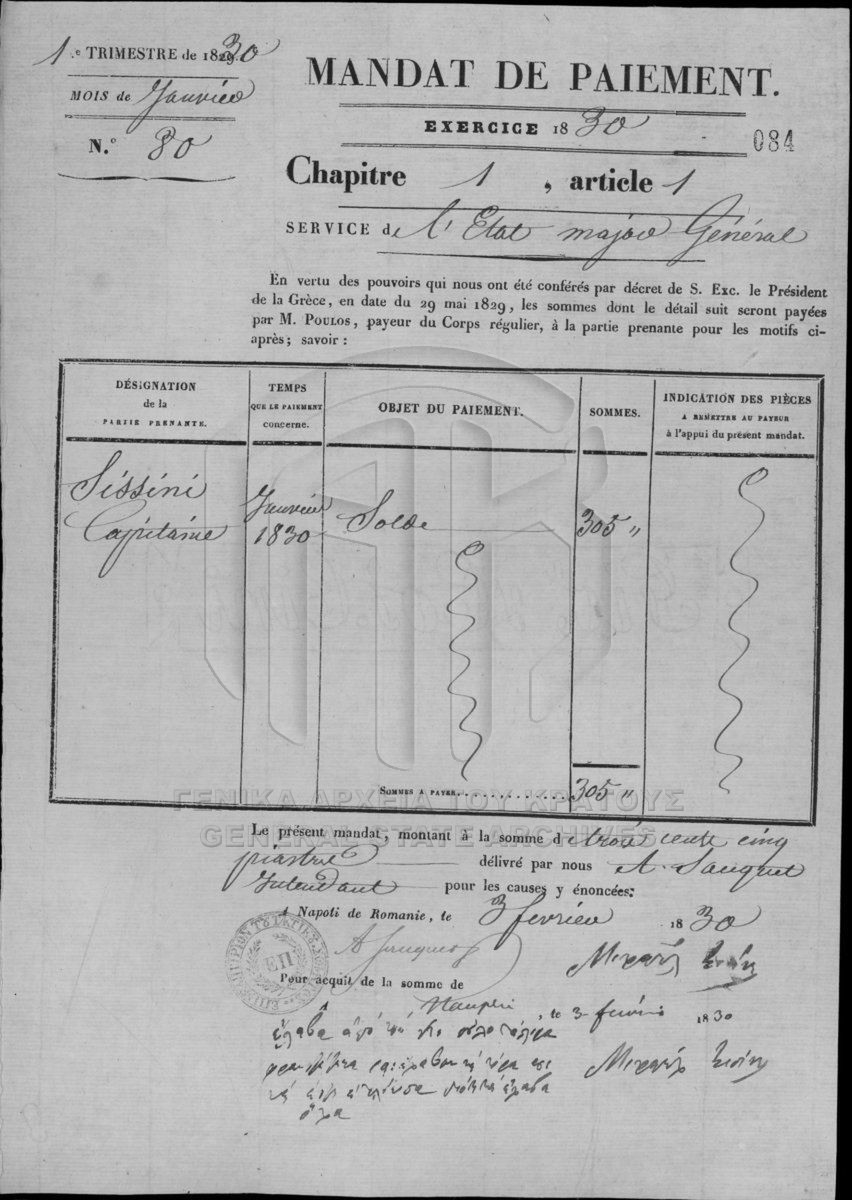 1.e TRIMESTRE de 1830
MOIS de Janvier
N.° 80
MANDAT DE PAIEMENT.
EXERCICE 1830
084
Chapitre 1, article 1
SERVICE de l'Etat major Général
En vertu des pouvoirs qui nous ont été conférés par décret de S. Exc. le Président
de la Grèce, en date du 29 mai 1829, les sommes dont le détail suit seront payées
par M. POULOS, payeur du Corps régulier, à la partie prenante pour les motifs ci-
après; savoir :
DÉSIGNATION
de la
PARTIE PRENANTE.
TEMPS
QUE LE PAIEMENT
concerne.
OBJET DU PAIEMENT.
SOMMES.
INDICATION DES PIÈCES
A REMETTRE AU PAYEUR
à l'appui du présent mandat.
Sissini
Capitaine
Janvier
1830
Solde
305 "
SOMMES A PAYER. 305 "
ΓΕΝΙΚΑ ΑΡΧΕΙΑ ΤΟΥ ΚΡΑΤΟΥΣ
GENERAL STATE ARCHIVES
Le présent mandat, montant à la somme de trois cents cinq
piastres délivré par nous A. Sauquet
Intendant pour les causes y énoncées;
A Napoti de Romanie, le 3 fevrier 1830
Pour acquit de la somme de
Naupli, le 3 fevrier 1830
έλαβα από τον
όλα